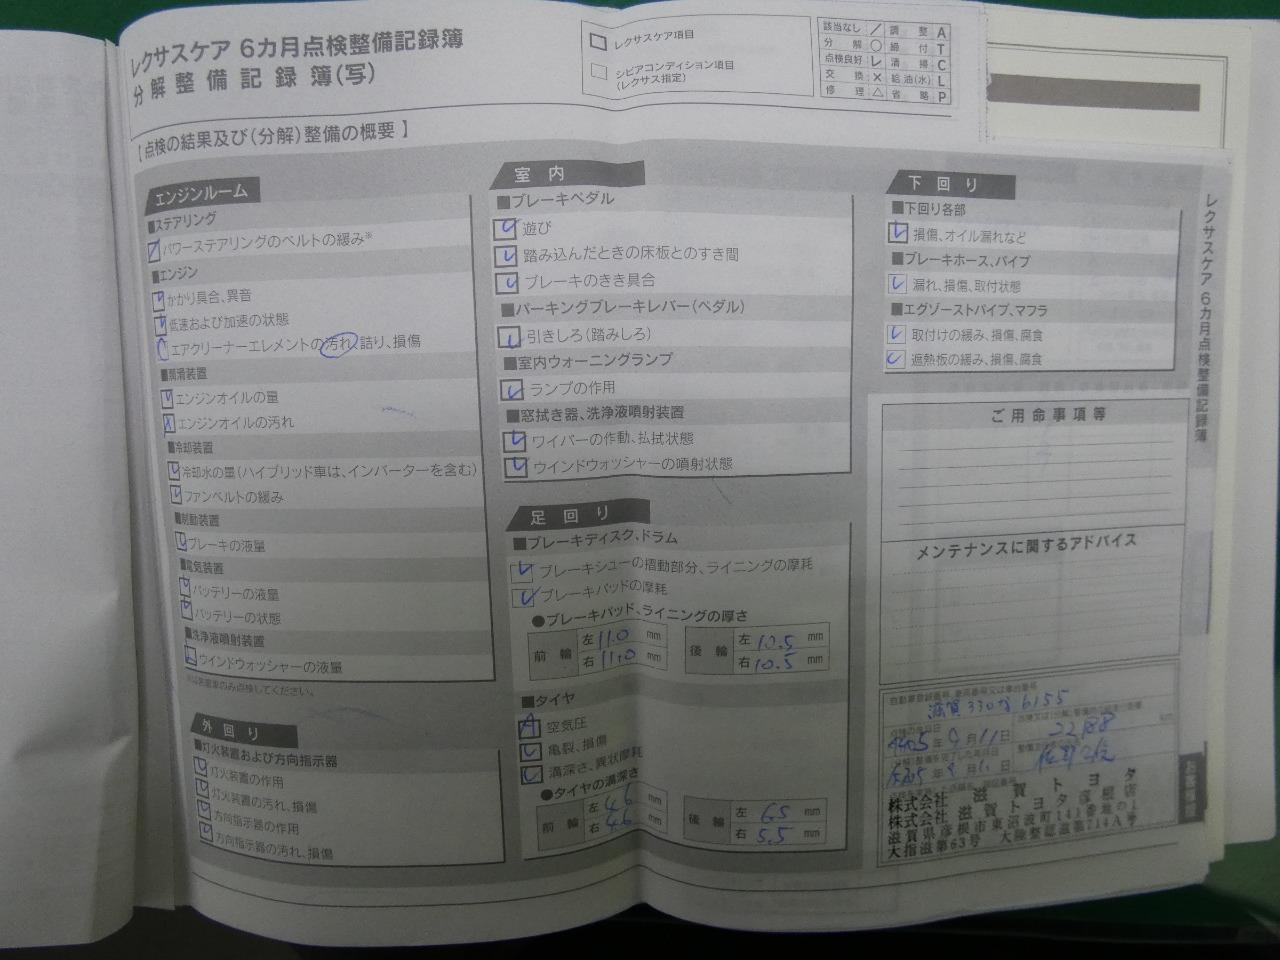 レクサスケア 6カ月点検整備記録簿
分解整備記録簿(写)
レクサスケア項目
シビアコンディション項目
(レクサス指定)
該当なし / 調整 A
分解 ○ 締付 T
点検良好 レ 清掃 C
交換 × 給油(水) L
修理 △ 省略 P
【点検の結果及び(分解)整備の概要】
エンジンルーム
■ステアリング
パワーステアリングのベルトの緩み※
■エンジン
かかり具合、異音
低速および加速の状態
エアクリーナーエレメントの汚れ、詰り、損傷
■潤滑装置
エンジンオイルの量
エンジンオイルの汚れ
■冷却装置
冷却水の量(ハイブリッド車は、インバーターを含む)
ファンベルトの緩み
■制動装置
ブレーキの液量
■電気装置
バッテリーの液量
バッテリーの状態
■洗浄液噴射装置
ウインドウォッシャーの液量
外回り
■灯火装置および方向指示器
灯火装置の作用
灯火装置の汚れ、損傷
方向指示器の作用
方向指示器の汚れ、損傷
室内
■ブレーキペダル
遊び
踏み込んだときの床板とのすき間
ブレーキのきき具合
■パーキングブレーキレバー(ペダル)
引きしろ(踏みしろ)
■室内ウォーニングランプ
ランプの作用
■窓拭き器、洗浄液噴射装置
ワイパーの作動、払拭状態
ウインドウォッシャーの噴射状態
足回り
■ブレーキディスク、ドラム
ブレーキシューの摺動部分、ライニングの摩耗
ブレーキパッドの摩耗
●ブレーキパッド、ライニングの厚さ
前輪 左 11.0 mm 後輪 左 10.5 mm
右 11.0 mm 右 10.5 mm
■タイヤ
A 空気圧
亀裂、損傷
溝深さ、異状摩耗
●タイヤの溝深さ
前輪 左 4.6 mm 後輪 左 6.5 mm
右 4.6 mm 右 5.5 mm
下回り
■下回り各部
損傷、オイル漏れなど
■ブレーキホース、パイプ
漏れ、損傷、取付状態
■エグゾーストパイプ、マフラ
取付けの緩み、損傷、腐食
遮熱板の緩み、損傷、腐食
ご用命事項等
メンテナンスに関するアドバイス
滋賀 330 6155
年 9月 11日
km
年 9月 11日
株式会社 滋賀トヨタ
株式会社 滋賀トヨタ彦根店
滋賀県彦根市東沼波町141番地の1
大指滋第63号 大陸整認滋第714A号
レクサスケア 6カ月点検整備記録簿
お客様控